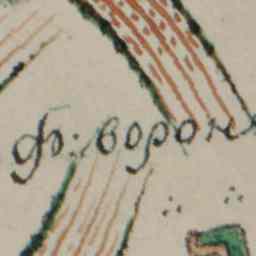 ф: ворон